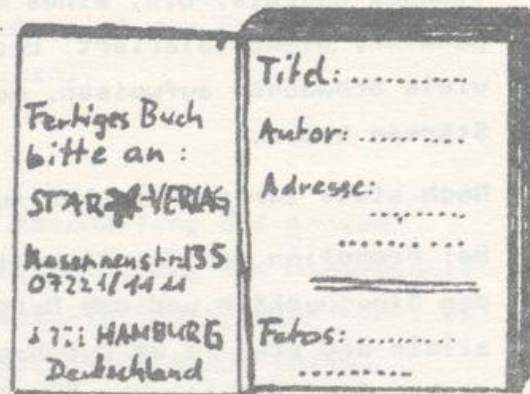 Fertiges Buch
bitte an:
STAR-VERLAG
07221/1111
HAMBURG
Deutschland
Titel: ..........
Autor: ..........
Adresse:
..........
..........
Fotos: ..........
..........